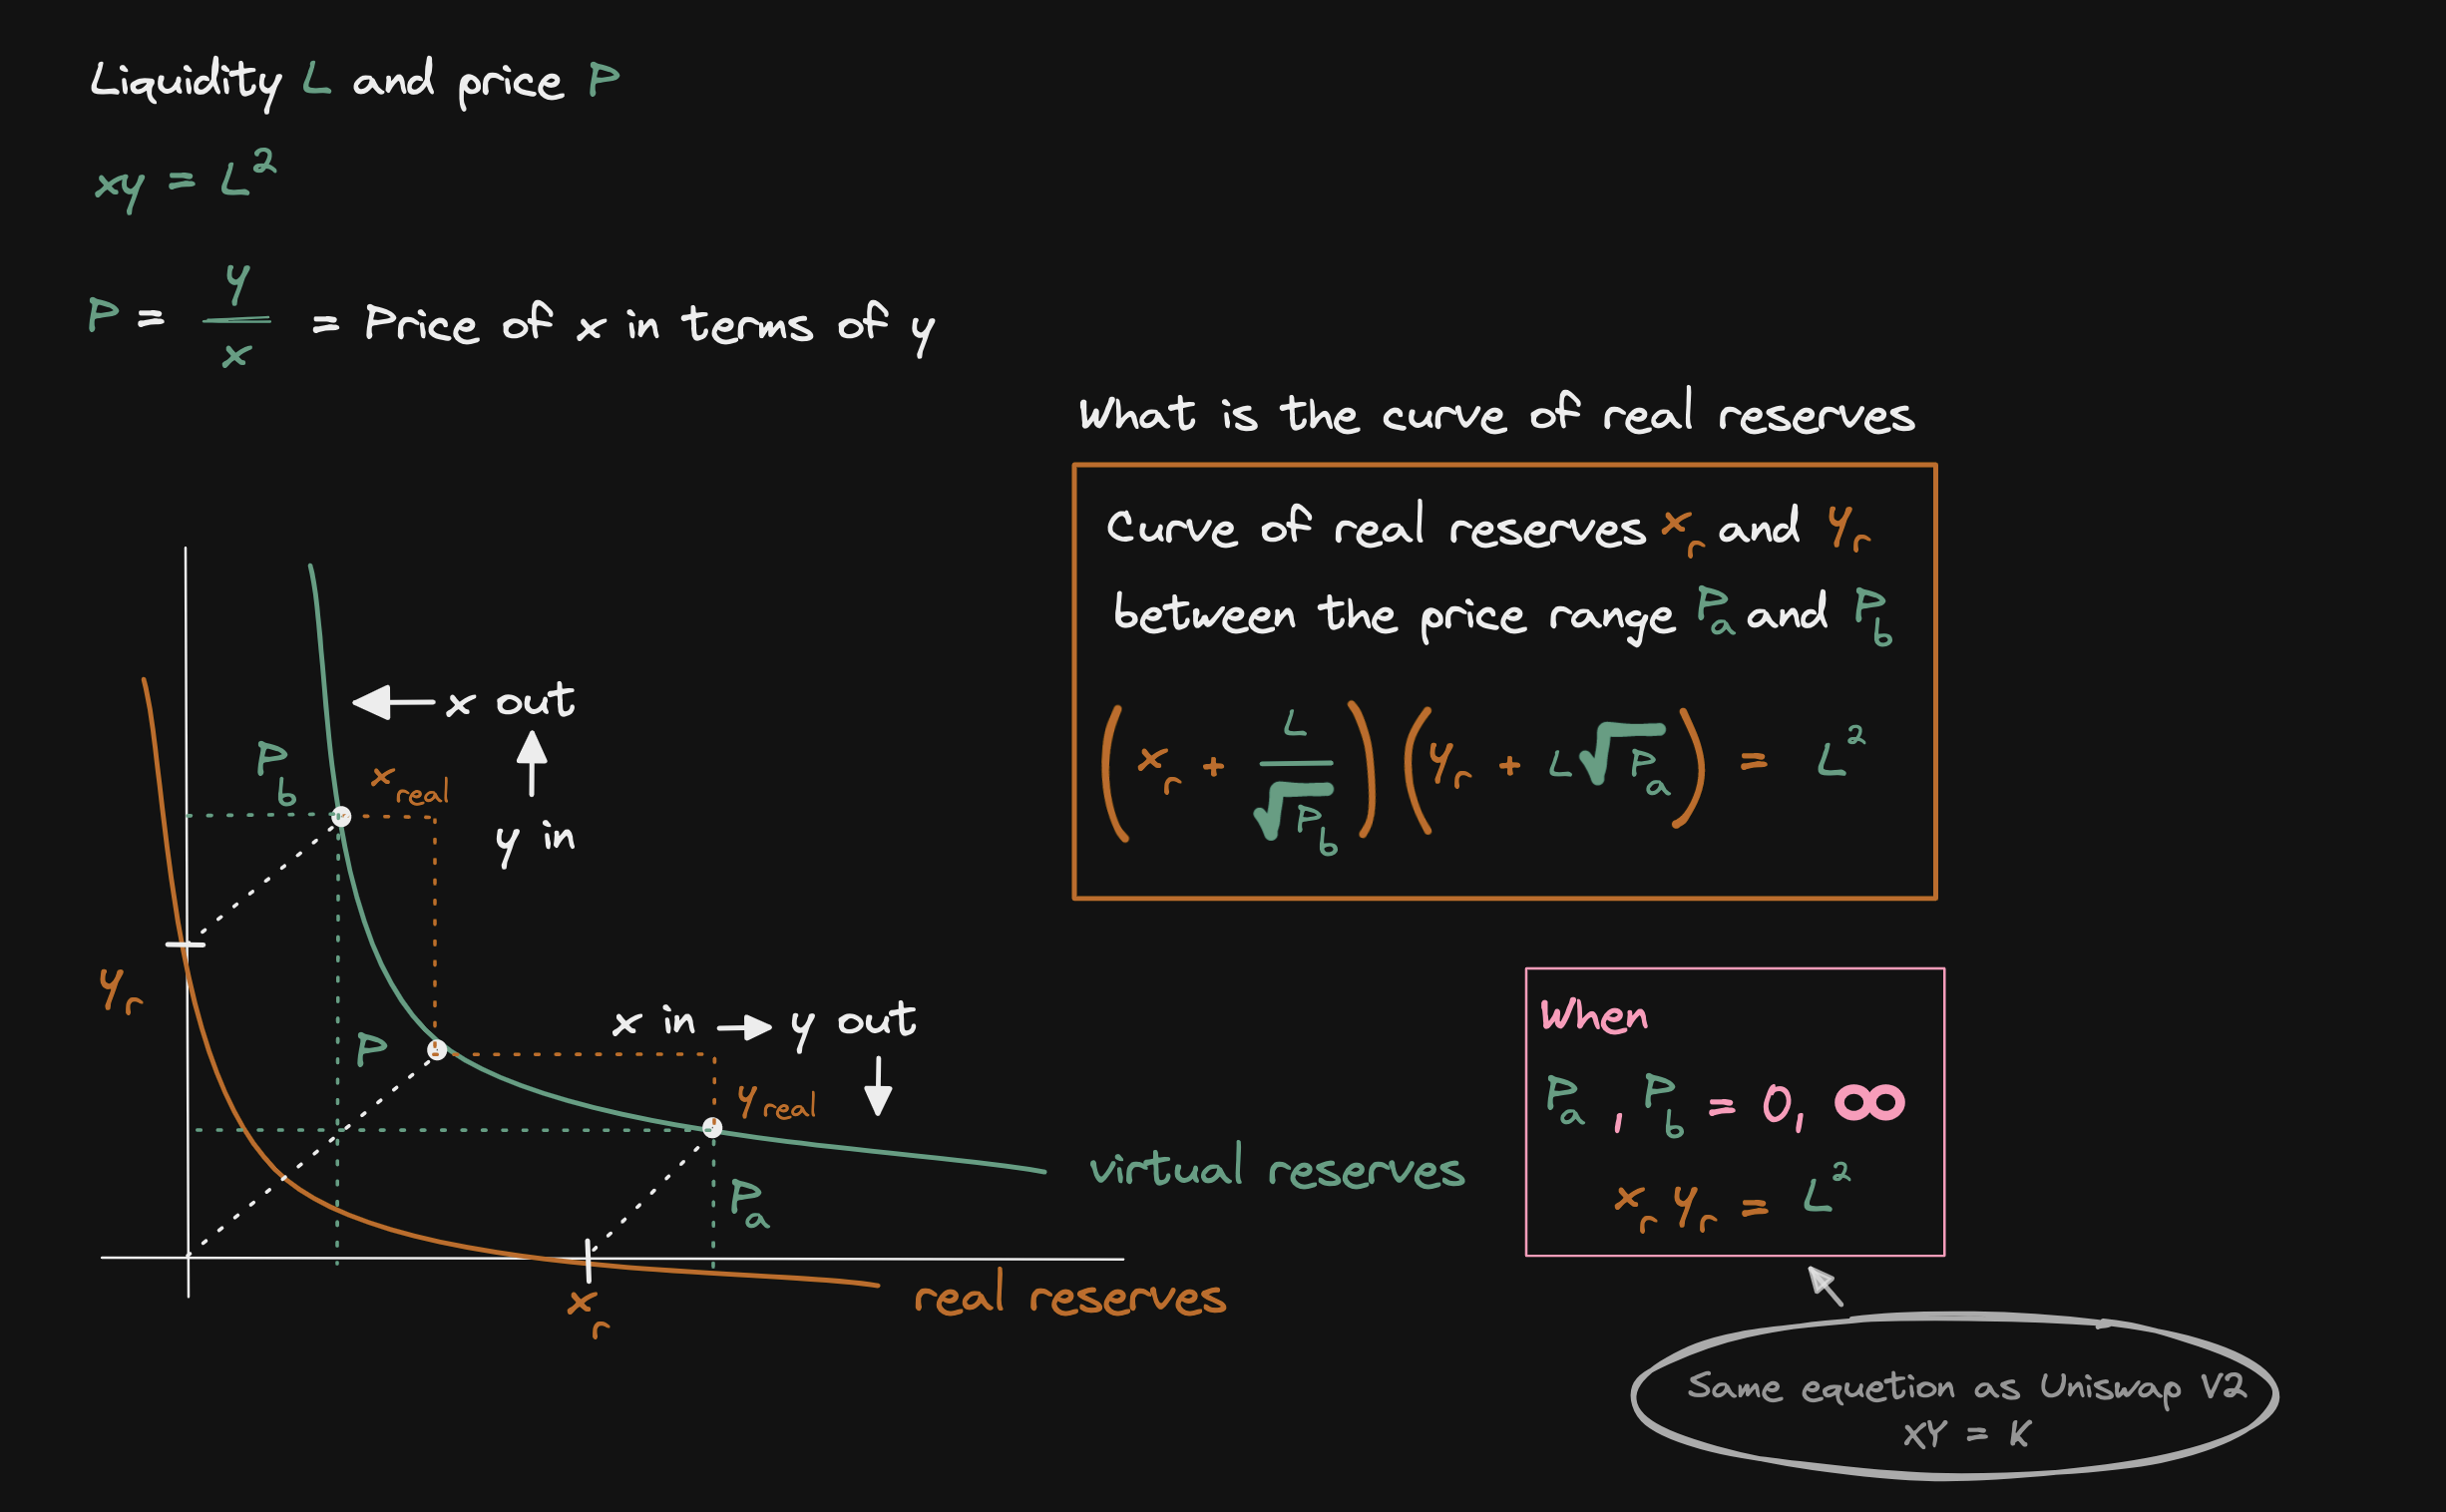 Liquidity L and price P
xy = L²
P = y/x = Price of x in terms of y
What is the curve of real reserves
Curve of real reserves xᵣ and yᵣ
between the price range Pₐ and P_b
(xᵣ + L/√P_b)(yᵣ + L√Pₐ) = L²
x out
P_b
x_real
y in
yᵣ
x in → y out
P
y_real
virtual reserves
Pₐ
xᵣ
real reserves
When
Pₐ, P_b = 0, ∞
xᵣ yᵣ = L²
Same equetion as Uniswap V2
XY = K